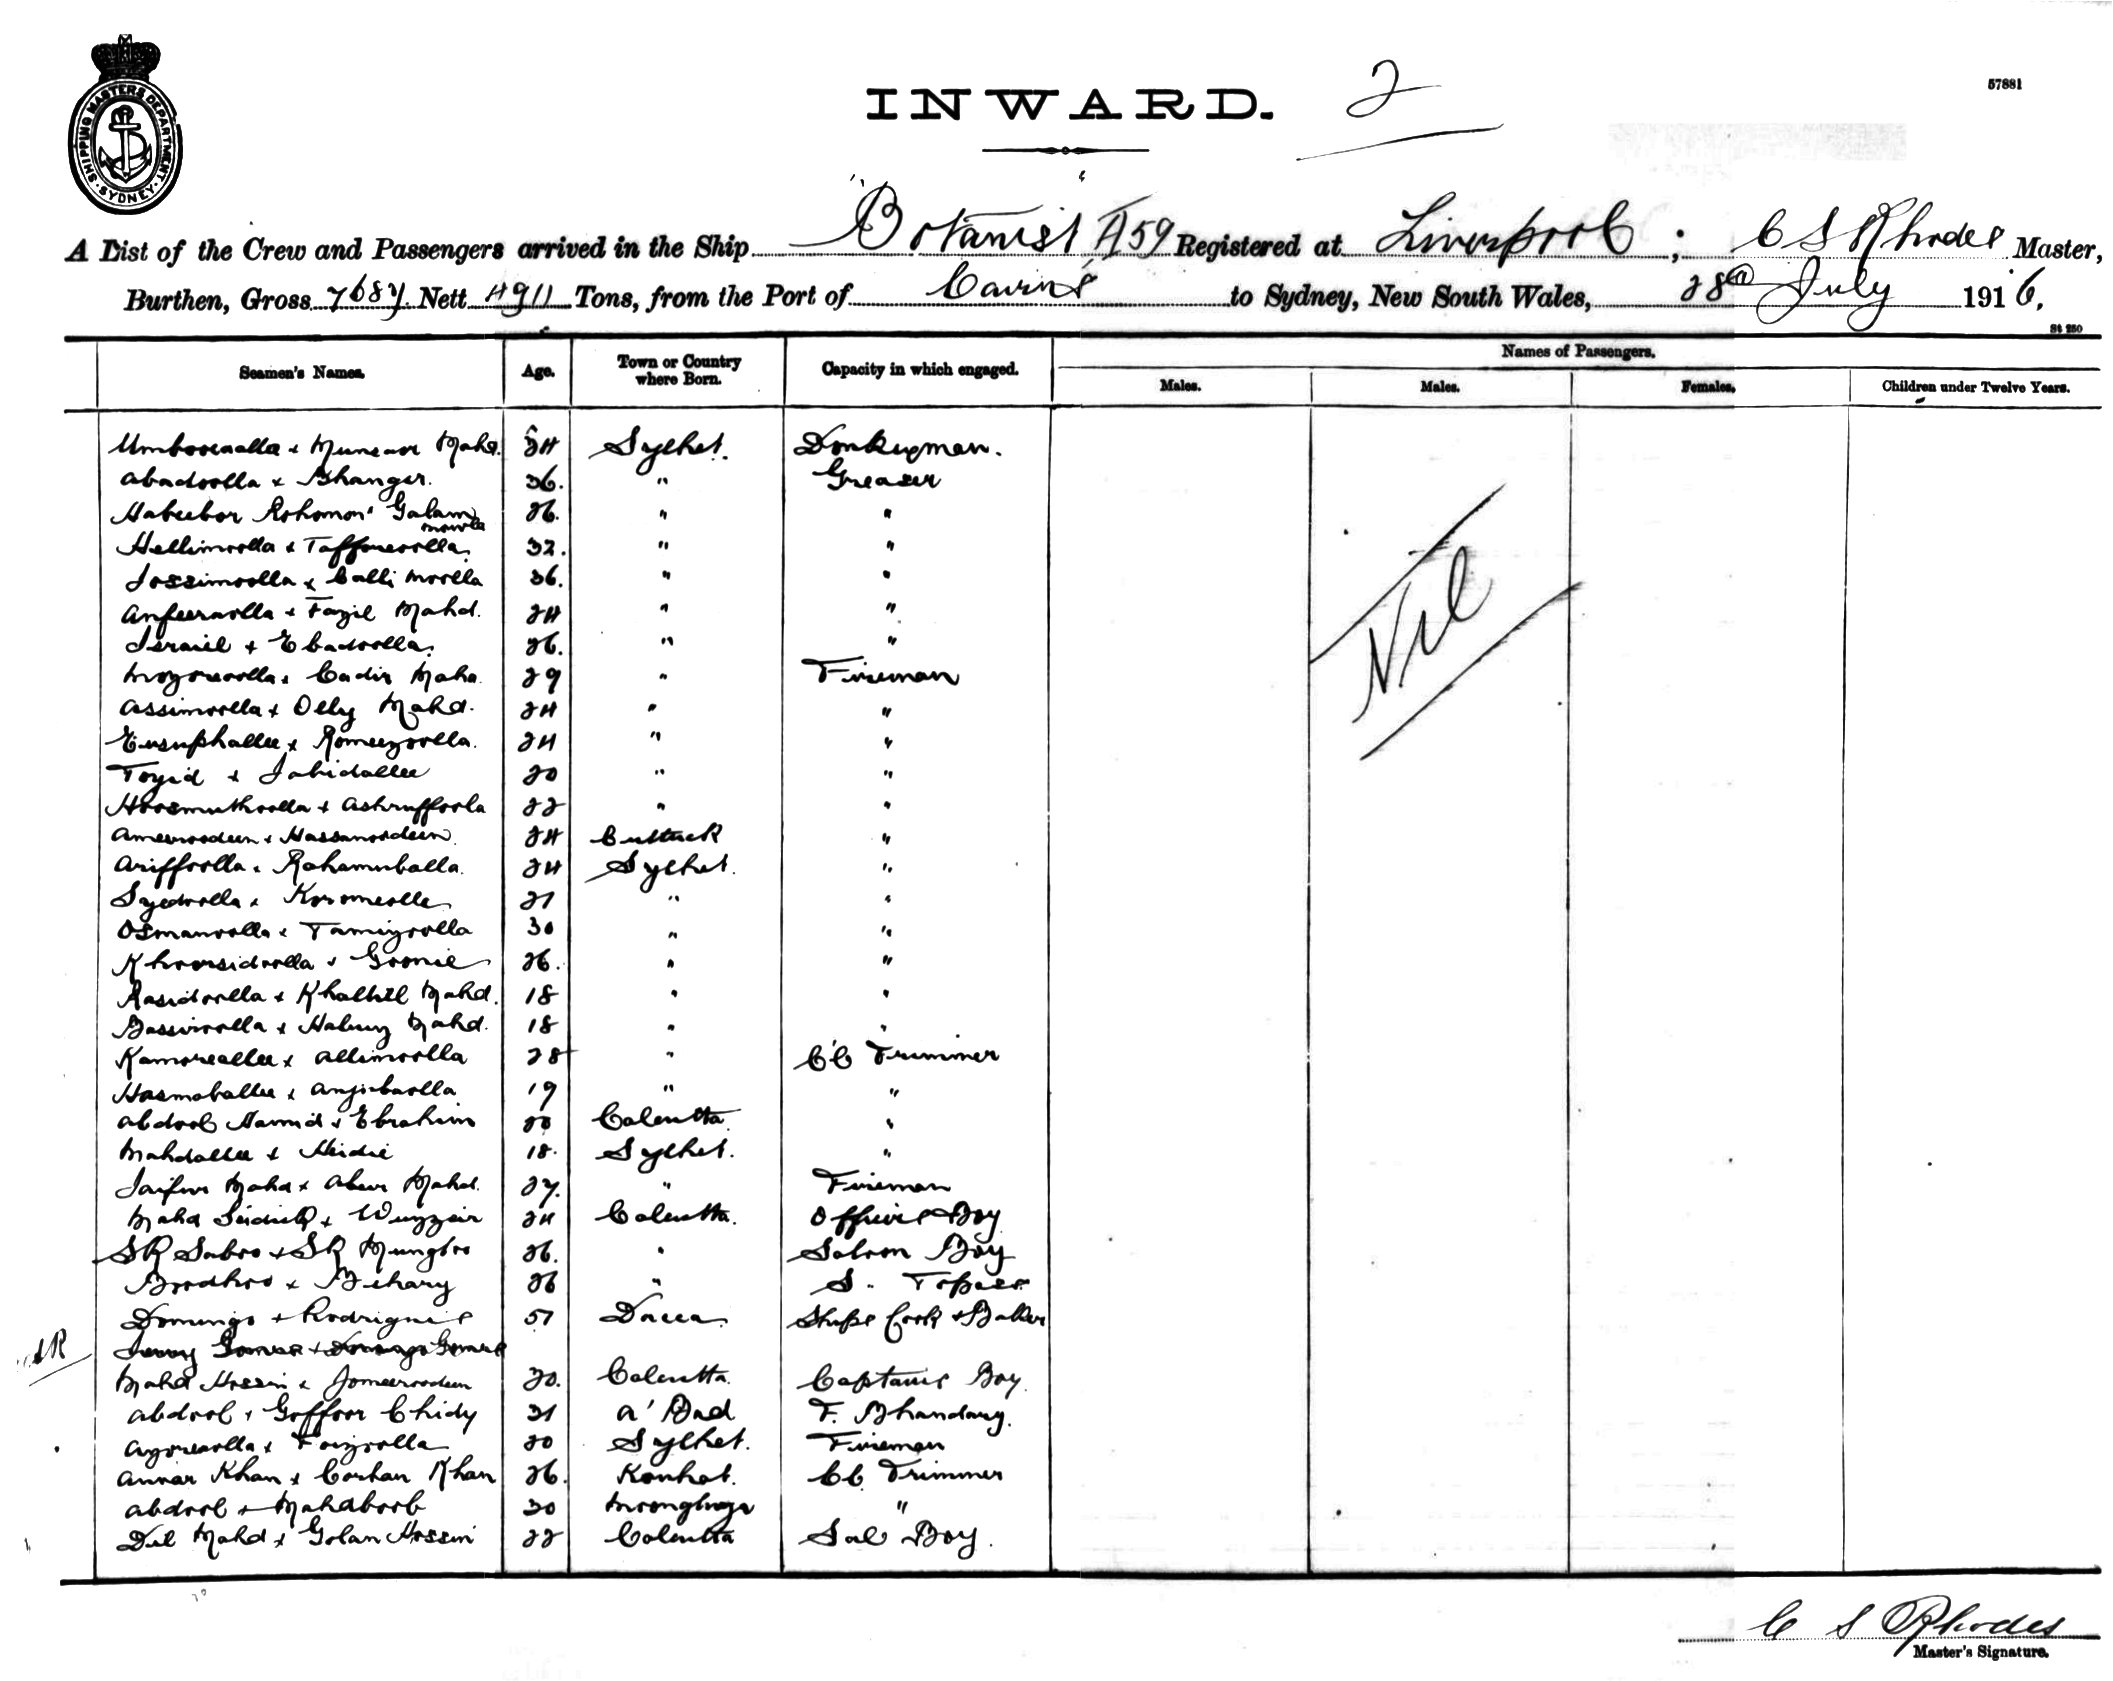 SHIPPING MASTERS DEPARTMENT. SYDNEY.
INWARD. 2
57881
A List of the Crew and Passengers arrived in the Ship "Botanist" A59 Registered at Liverpool; C S Rhodes Master,
Burthen, Gross 7687 Nett 4911 Tons, from the Port of Cairns to Sydney, New South Wales, 28th July 1916.
St 250
Seamen's Names. Age. Town or Country where Born. Capacity in which engaged. Names of Passengers.
Males. Males. Females. Children under Twelve Years.
Nil
24 Sylhet. Donkeyman.
Abadoolla x Bhanger. 36. " Greaser
Habeebor Rohomon Golam Mowla 26. " "
Hellimoolla x 32. " "
Jossimoolla x Calli Moolla 36. " "
x Fazil Mahd. 24 " "
Israiel x Ebadoolla. 26. " "
x Cadir Mahd. 29 " Fireman
Assimoolla x Olly Mahd. 24 " "
Eusuphallee x Romeezoolla. 24 " "
Toyid x Jahidallee 20 " "
Hossmuthoolla x Ashruffoola 22 " "
Ameeroodeen x Hassanoodeen 24 Cuttack "
Ariffoolla x 24 Sylhet. "
Syedoolla x 21 " "
Osmanoolla x Tamizoolla 30 " "
Khoorsidoolla x Goonie 26. " "
Rasidoolla x Khallil Mahd. 18 " "
Bassiroolla x Mahd. 18 " "
Kamoreallee x Allimoolla 28 " C'l Trimmer
x 19 " "
Abdool Hamid x Ebrahim 20 Calcutta "
Mahdallee x Heidie 18. Sylhet. "
Mahd x Mahd. 27. " Fireman
Mahd Seidick x Wuzzeir 24 Calcutta. Officers Boy
SK Saboo x SK Mungloo 26. " Saloon Boy
Boodhoo x Behary 26 " S. Topass
Domingo x Rodrigues 51 Dacca Ships Cook & Baker
Jerry Gomes x Domingo Gomes
Mahd Hossin x Jomeeroodeen 20. Calcutta. Captains Boy.
Abdool x Goffoor Chidy 31 A'Bad F. Bhandary.
x Foizoolla 20 Sylhet. Fireman
Anwar Khan x Khan 26. Kohat. Cl. Trimmer
Abdool x Mahdboob 30 "
Dil Mahd x Golan Hossin 22 Calcutta Sal Boy.
C S Rhodes
Master's Signature.